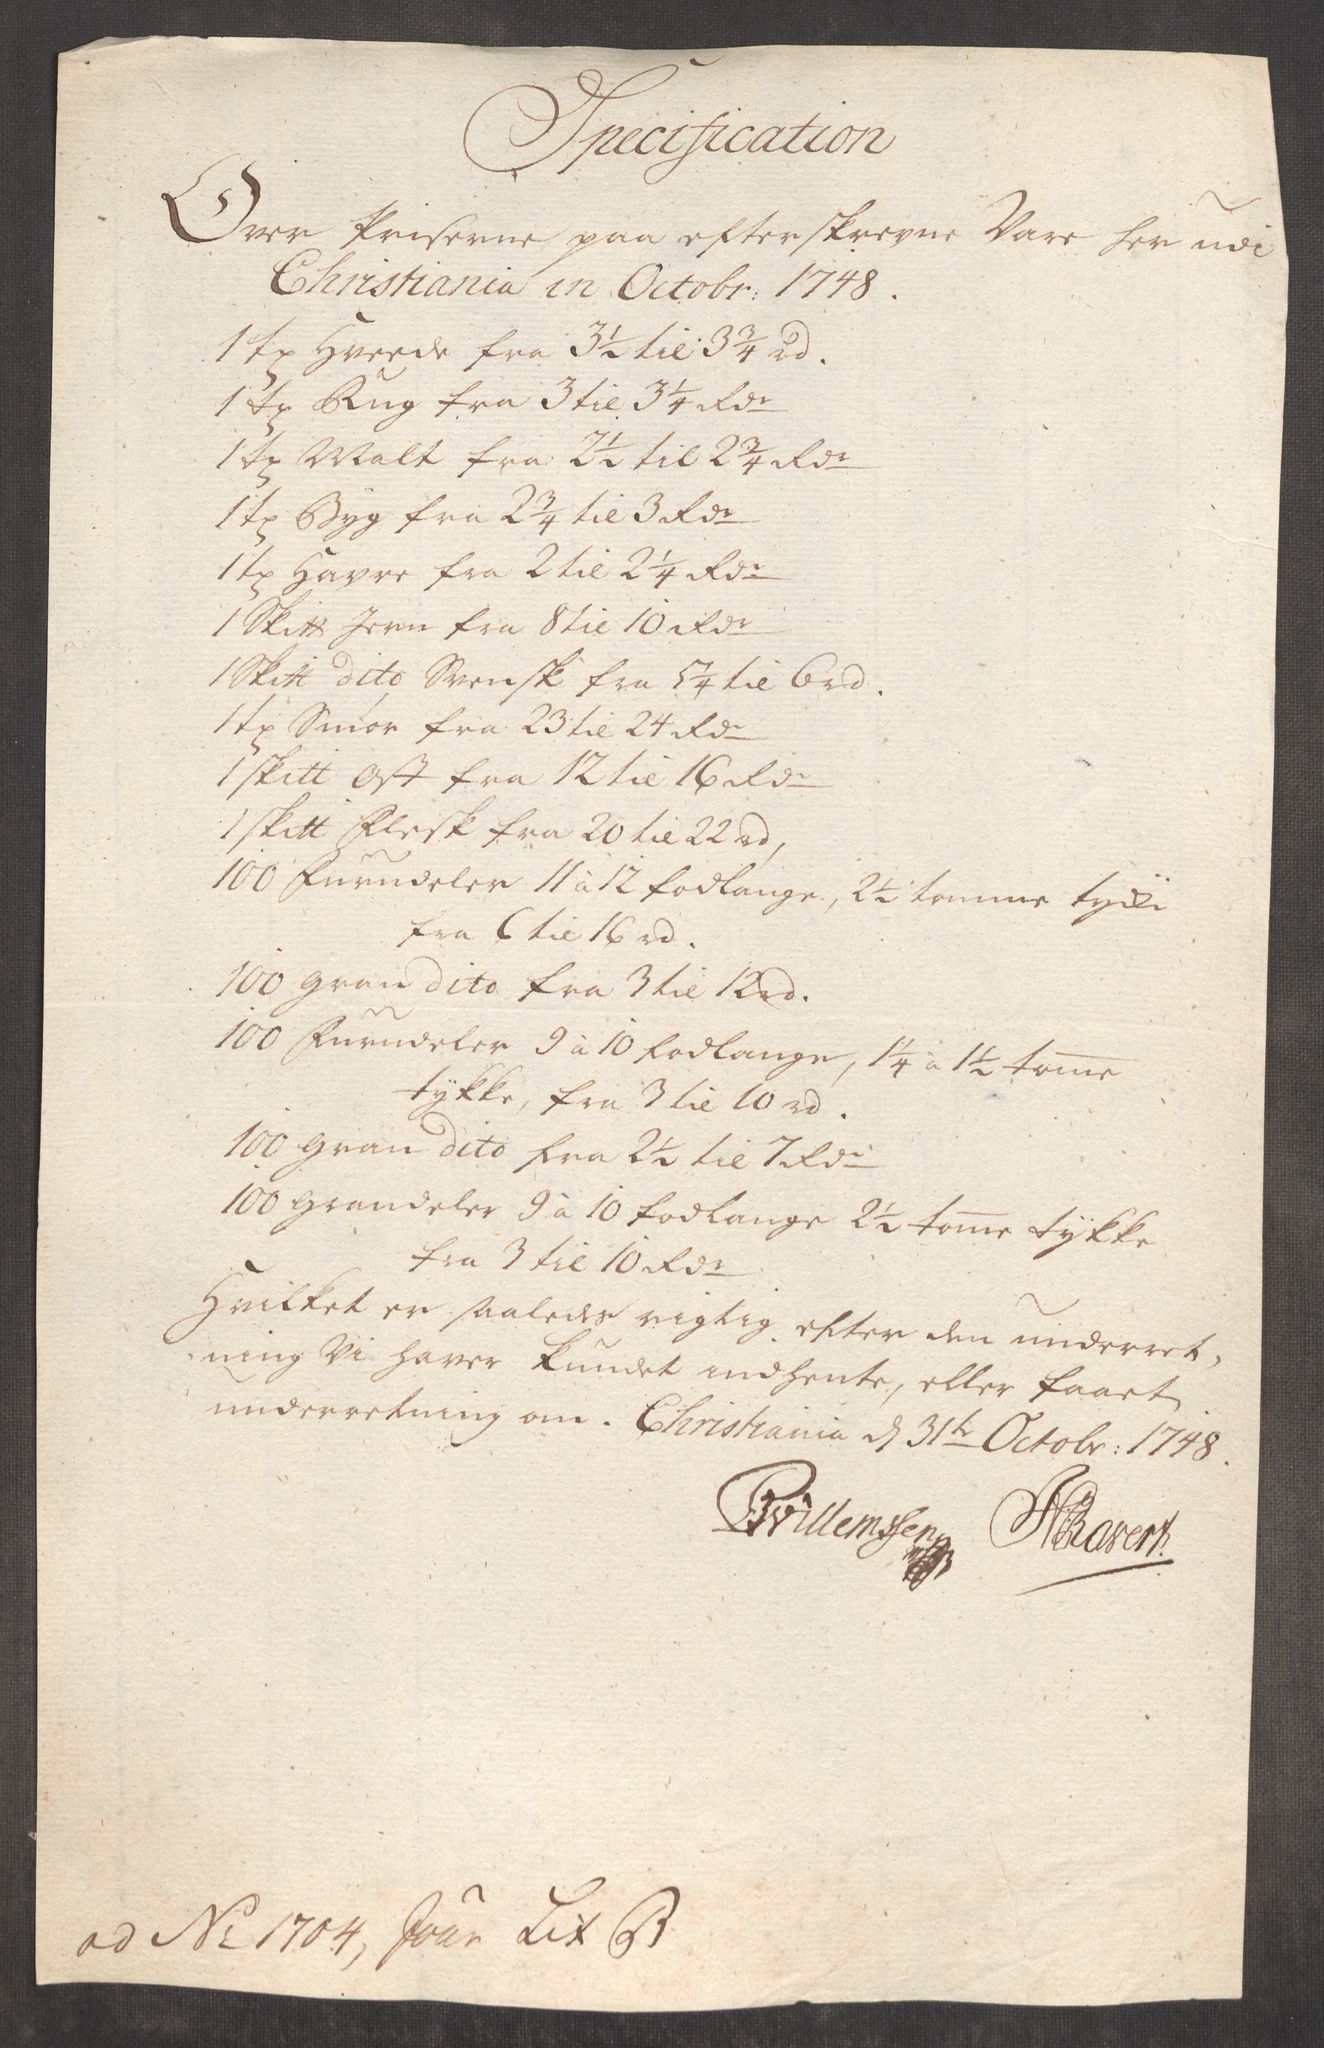 Specification
Over Priserne paa efterskrevne Vare her udi
Christiania in Octobr: 1748.
1 tr Hvede fra 3½ til 3¾ rd.
1 tr Rug fra 3 til 3¼ Rdr
1 tr Malt fra 2½ til 2¾ Rdr
1 tr Byg fra 2¾ til 3 Rdr
1 tr Havre fra 2 til 2¼ Rdr
1 Skitt Jern fra 8 til 10 Rdr
1 Skitt dito Svensk fra til 6 rd.
1 tr Smør fra 23 til 24 Rdr
1 skitt Ost fra 12 til 16 Rdr
1 skitt Flesk fra 20 til 22 rd,
100 Furudeler 11 à 12 fodlange, 2½ tomme
fra 6 til 16 rd.
100 gran dito fra 3 til 12 rd.
100 Furudeler 9 à 10 fodlange, 1¼ à 1½ tomme
tykke, fra 3 til 10 rd.
100 gran dito fra 2½ til 7 Rdr
100 grandeler 9 à 10 fodlange 2½ tomme tykke
fra 3 til 10 Rdr
Hvilket er saaledes rigtig efter den underret,
ning Vi haver kundet indhente, eller faaet
underretning om. Christiania d 31te Octobr: 1748.
Willemssen Ravert
ad No 1704, Jour Lit B